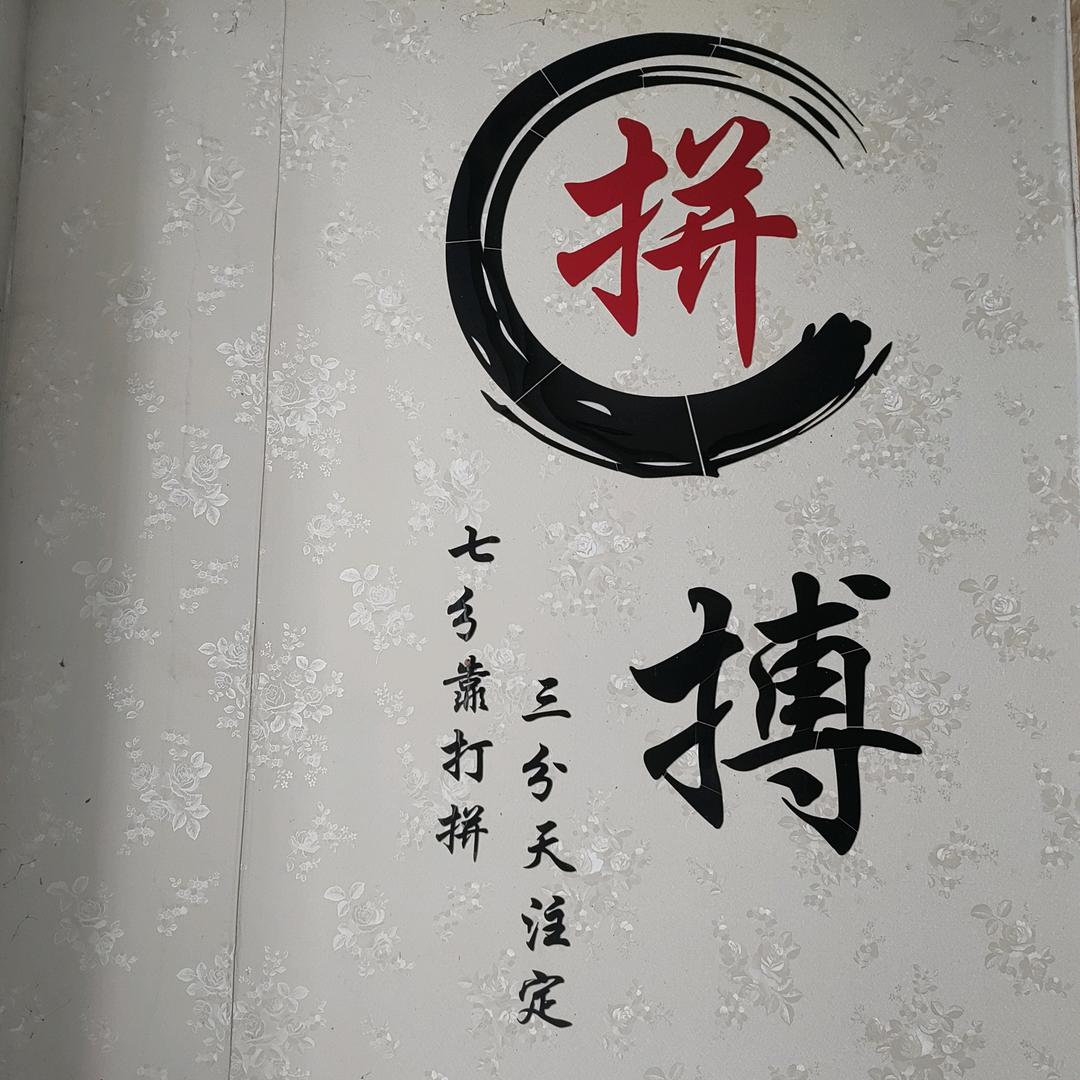 拼
搏
三分天注定
七分靠打拼